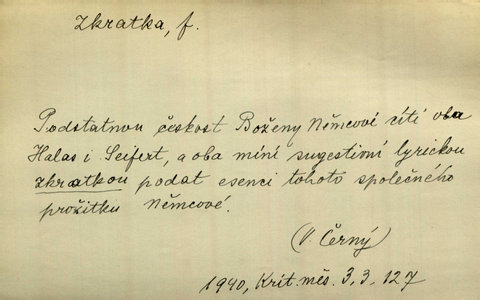 Zkratka, f.
Podstatnou českost Boženy Němcové cítí oba
Halas i Seifert, a oba míní sugestivní lyrickou
zkratkou podat esenci tohoto společného
prožitku Němcové.
(V. Černý)
1940, Krit. měs. 3, 3. 127